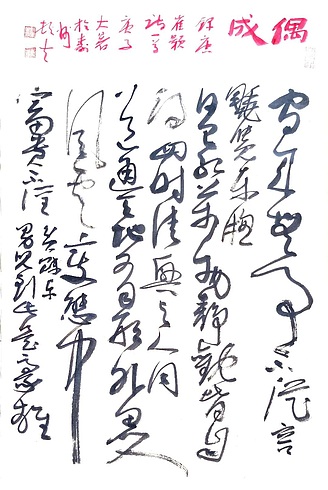 偶成
錄唐
崔颢
诗一首
庚子
大暑
於壽
州
閑来無事不從容
睡覺東窗
日已红萬物静觀皆自
得四时佳興与人同
道通天地有形外思入
風雲變態中
富貴不淫貧賤乐
男兒到此是豪雄